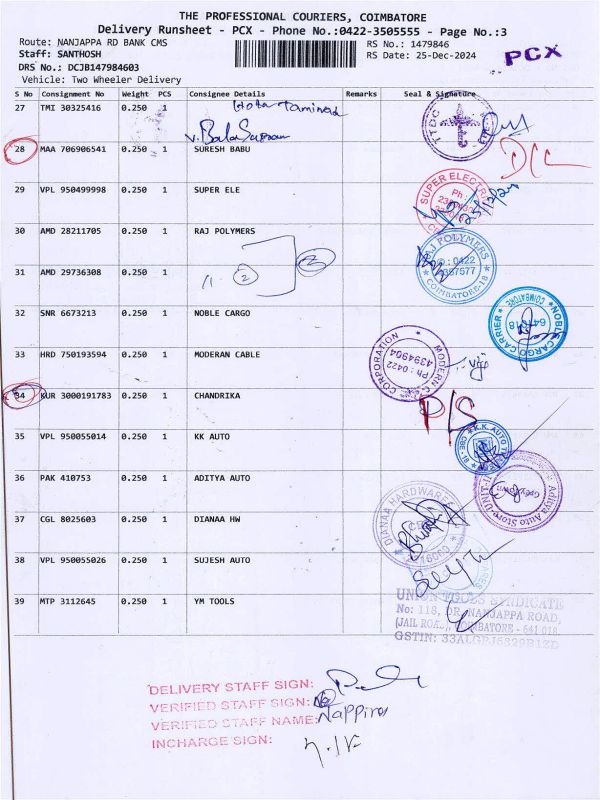 THE PROFESSIONAL COURIERS, COIMBATORE
Delivery Runsheet - PCX - Phone No.:0422-3505555 - Page No.:3
Route: NANJAPPA RD BANK CMS
RS No.: 1479846
Staff: SANTHOSH
RS Date: 25-Dec-2024
PCX
DRS No.: DCJB147984603
Vehicle: Two Wheeler Delivery
S No Consignment No Weight PCS Consignee Details Remarks Seal & Signature
27 TMI 30325416 0.250 1 Hotel Tamilnadu
28 MAA 706906541 0.250 1 SURESH BABU D/L
29 VPL 950499998 0.250 1 SUPER ELE
SUPER ELECTR
25/12/24
30 AMD 28211705 0.250 1 RAJ POLYMERS
RAJ POLYMERS
COIMBATORE-18
31 AMD 29736308 0.250 1
2
32 SNR 6673213 0.250 1 NOBLE CARGO
NOBLE CARGO CARRIER
COIMBATORE
33 HRD 750193594 0.250 1 MODERAN CABLE
CORPORATION
Ph : 0422
4394904
34 KUR 3000191783 0.250 1 CHANDRIKA P/S
35 VPL 950055014 0.250 1 KK AUTO
36 PAK 410753 0.250 1 ADITYA AUTO
Aditya Auto Store-UNIT-I
37 CGL 8025603 0.250 1 DIANAA HW
DIANAA HARDWARE
38 VPL 950055026 0.250 1 SUJESH AUTO
39 MTP 3112645 0.250 1 YM TOOLS
No: 118, DR. NANJAPPA ROAD,
(JAIL ROAD), COIMBATORE - 641 018.
DELIVERY STAFF SIGN:
VERIFIED STAFF SIGN:
VERIFIED STAFF NAME:
INCHARGE SIGN: